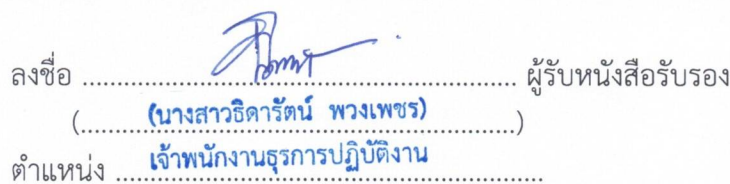 ลงชื่อ ........................................................ ผู้รับหนังสือรับรอง
(....(นางสาวธิดารัตน์ พวงเพชร)....)
ตำแหน่ง ....เจ้าพนักงานธุรการปฏิบัติงาน....